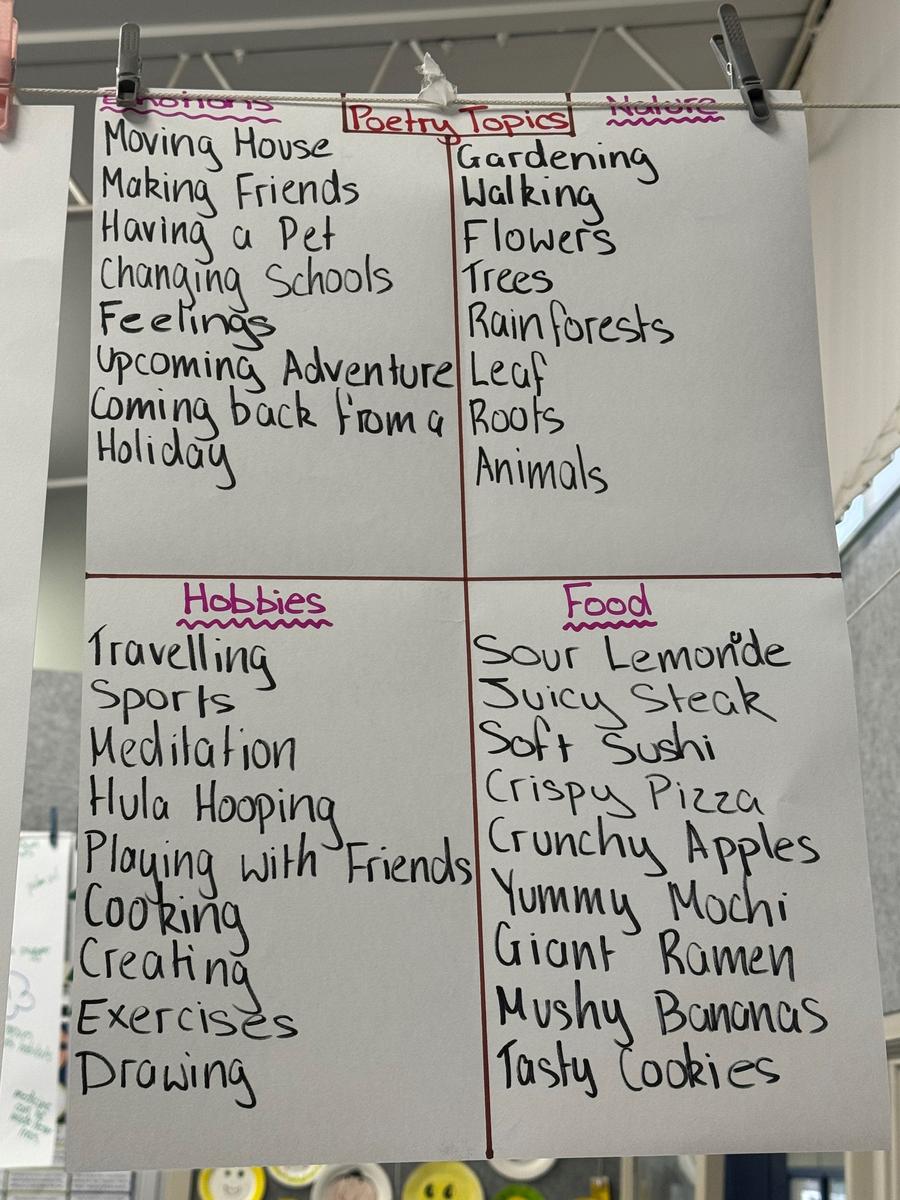 Poetry Topics
Emotions
Moving House
Making Friends
Having a Pet
Changing Schools
Feelings
Upcoming Adventure
Coming back from a
Holiday
Nature
Gardening
Walking
Flowers
Trees
Rainforests
Leaf
Roots
Animals
Hobbies
Travelling
Sports
Meditation
Hula Hooping
Playing with Friends
Cooking
Creating
Exercises
Drawing
Food
Sour Lemonade
Juicy Steak
Soft Sushi
Crispy Pizza
Crunchy Apples
Yummy Mochi
Giant Ramen
Mushy Bananas
Tasty Cookies